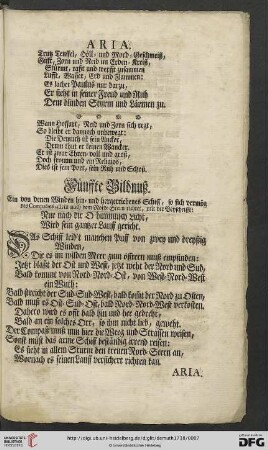 ARIA.
Trutz Teuffel, Höll- und Mord-Geschmeiß,
Gifft, Zorn und Neid im Erden-Kreiß,
Stürmt, rafft und werfft zusammen
Lufft, Wasser, Erd und Flammen:
Es lachet Paulus nur darzu,
Er steht in seiner Freud und Ruh
Dem blinden Sturm und Lärmen zu.
Wann Hoffart, Neid und Zorn sich regt,
So bleibt er dannoch unbewegt:
Die Demuth ist sein Ancker,
Denn thut er keinen Wancker.
Er ist zwar Ehren-voll und groß,
Doch fromm und ein Religios,
Diß ist sein Port, sein Ruh und Schoß.
Fünffte Bildnuß.
Ein von denen Winden hin- und hergetriebenes Schiff, so sich vermög
des Compasses allein nach dem Nord-Stern richtet, mit der Beyschrifft:
Nur nach dir O himmlisch Liecht,
Wird sein gantzer Lauff gericht.
DAs Schiff leid't manchen Puff von zwey und dreyßig
Winden,
Die es im wilden Meer zum öfftern muß empfinden:
Jetzt blaßt der Ost und West, jetzt weht der Nord und Sud,
Bald kommt von Nord-Nord-Ost, von West-Nord-West
ein Wuth:
Bald streicht der Sud-Sud-West, bald saußt der Nord zu Osten,
Bald muß es Ost-Sud-Ost, bald Nord-Nord-West verkosten.
Dahero wird es offt bald hin und her gedreht,
Bald an ein solches Ort, so ihm nicht lieb, gewehet.
Der Compaß muß ihm hier die Weeg und Strassen weisen,
Sonst müßt das arme Schiff beständig irrend reisen:
Es sieht in allem Sturm den treuen Nord-Stern an,
Wornach es seinen Lauff versichert richten kan.
ARIA.
http://digi.ub.uni-heidelberg.de/diglit/demuth1738/0007
© Universitätsbibliothek Heidelberg
gefördert durch die
DFG